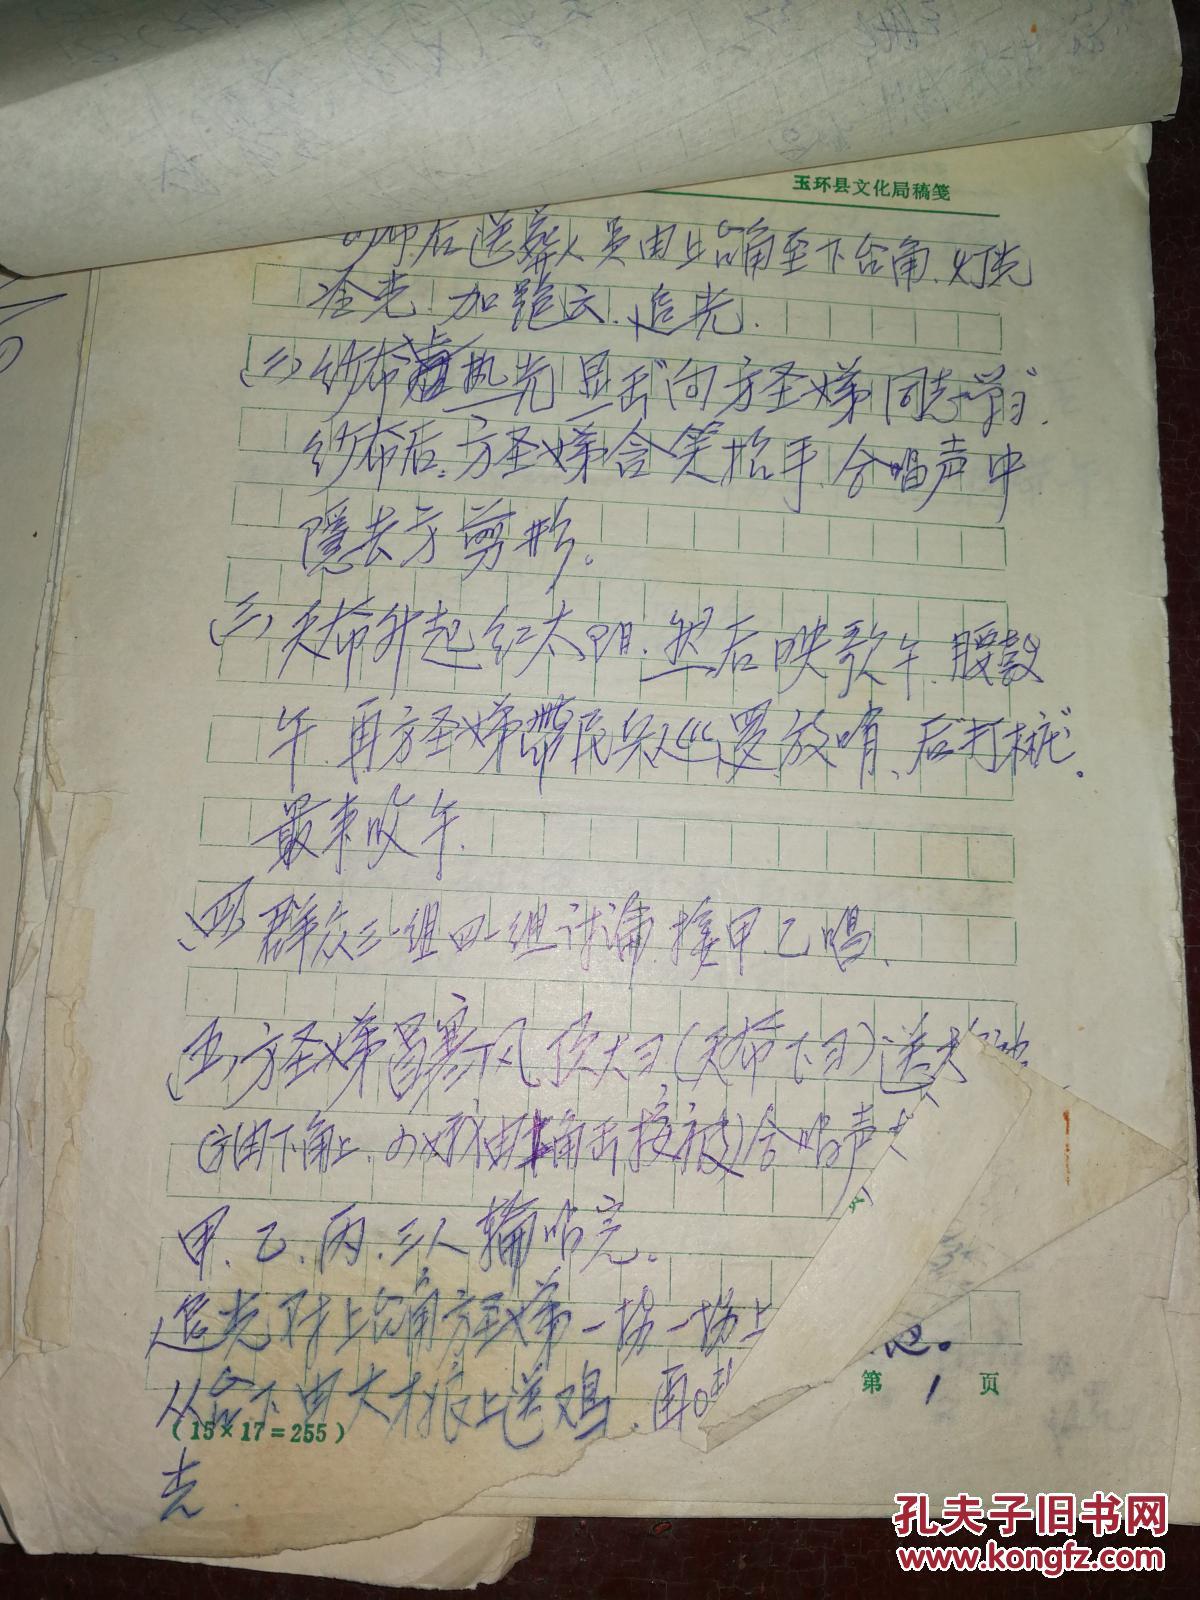 玉环县文化局稿笺
纱布后送葬人员由上台角至下台角.灯光
冷光.加跑云.追光.
(二)纱布 热光 显出"向方圣娣同志学习".
纱布后:方圣娣含笑抬手.合唱声中
隐去方剪形。
(三)天布升起红太阳.然后映歌午.腰鼓
午.再方圣娣带民兵巡逻放哨、后"打桩".
最末收午.
(四)群众三一组四一组讨论.接甲.乙唱、
(五)方圣娣冒寒风顶大雪(天布下雪)送
(方由下角上、 由上角 接被)合唱声
甲、乙、丙.三人轮唱完。
追光 上台角方圣娣一场一场上
从台下由大 上送鸡.再
光.
(15×17=255)
第 1 页
孔夫子旧书网
www.kongfz.com